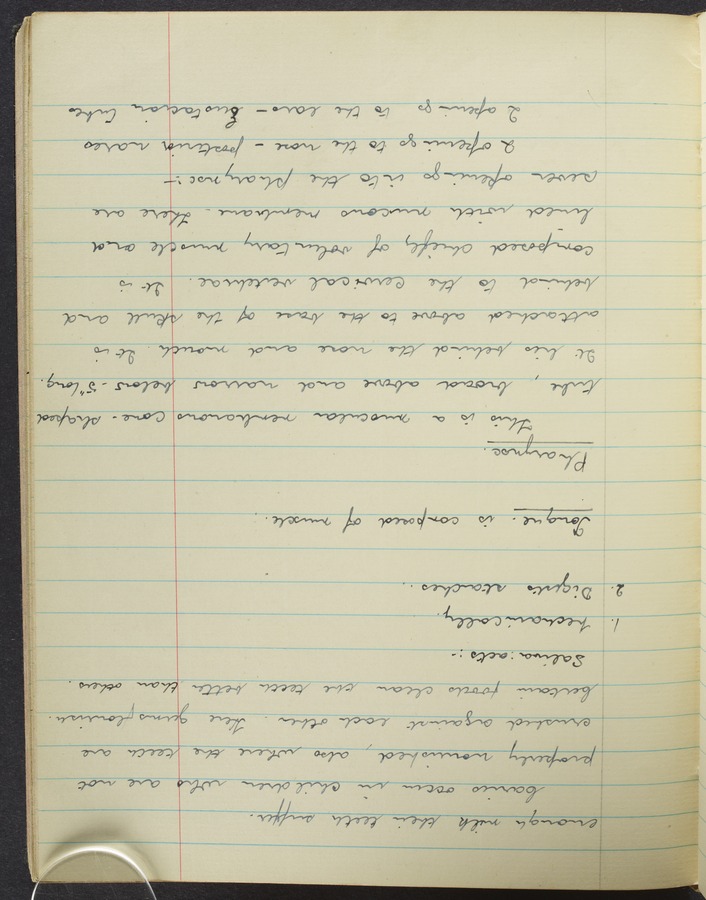 enough milk their teeth suffer.
Carries occur in children who are not
properly nourished, also where the teeth are
crushed against each other. Here germs flourish.
Certain foods clean the teeth better than others.
Saliva: acts:-
1. Mechanically.
2. Digests starches.
Tongue. is composed of muscle.
Pharynx.
This is a muscular membranous cone-shaped
tube, broad above and narrow below - 5" long.
It lies behind the nose and mouth. It is
attached above to the base of the skull and
behind to the cervical vertebrae. It is
composed chiefly of voluntary muscle and
lined with mucous membrane. There are
seven openings into the pharynx:-
2 openings to the nose - posterior nares
2 openings to the ears - Eustacian tubes